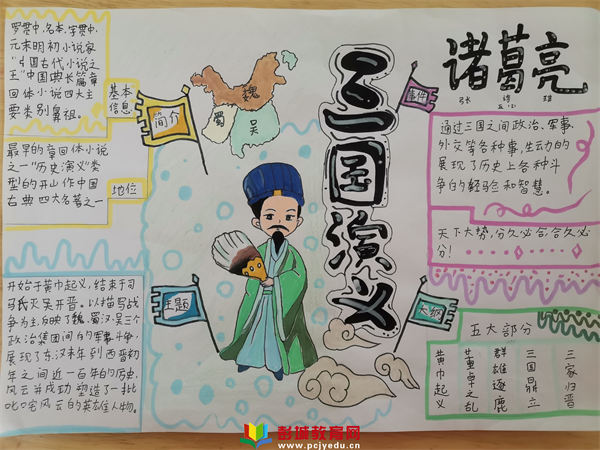 罗贯中,名本,字贯中,
元末明初小说家
"中国古代小说之
王"中国典长篇章
回体小说四大主
要类别鼻祖。
基本
信息
最早的章回体小说
之一"历史演义"类
型的开山作中国
古典四大名著之一
地位
开始于黄巾起义,结束于司
马氏灭吴开晋。以描写战
争为主,反映了魏、蜀汉、吴三个
政治集团间的军事斗争,
展现了东汉末年到西晋初
年之间近一百年的历史
风云并成功塑造了一批
叱咤风云的英雄人物。
简介
魏
蜀
吴
主题
三国演义
事件
大纲
诸葛亮
通过三国之间政治、军事、
外交等各种事,生动的
展现了历史上各种斗
争的经验和智慧。
天下大势,分久必合,合久必
分!
五大部分
黄巾起义
董卓之乱
群雄逐鹿
三国鼎立
三家归晋
彭城教育网
www.pcjyedu.cn